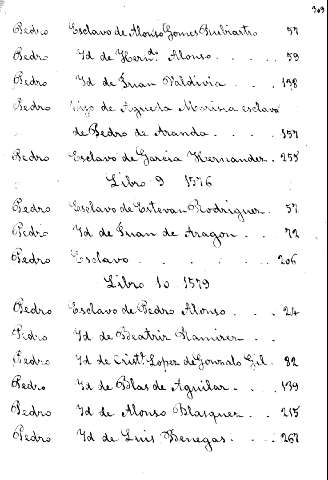 309
Pedro Esclavo de Alonso Gomes Rubiastro 57
Pedro Id de Hern.do Alonso . . . . . 59
Pedro Id de Juan Valdivia . . . 138
Pedro hijo de Agueda Morisca esclava
de Pedro de Aranda . . . . 157
Pedro Esclavo de Garcia Hernandez . 255
Libro 9 1576
Pedro Esclavo de Estevan Rodriguez . 57
Pedro Id de Juan de Aragon . . . 72
Pedro Esclavo . . . . . . . 206
Libro 10 1579
Pedro Esclavo de Pedro Alonso . . . 24
Pedro Id de Beatriz Ramirez . . .
Pedro Id de Crist.l Lopez de Gonzalo Gil . 82
Pedro Id de Blas de Aguilar . . . 139
Pedro Id de Alonso Blasquez . . . 215
Pedro Id de Luis Benegas . . . . 267